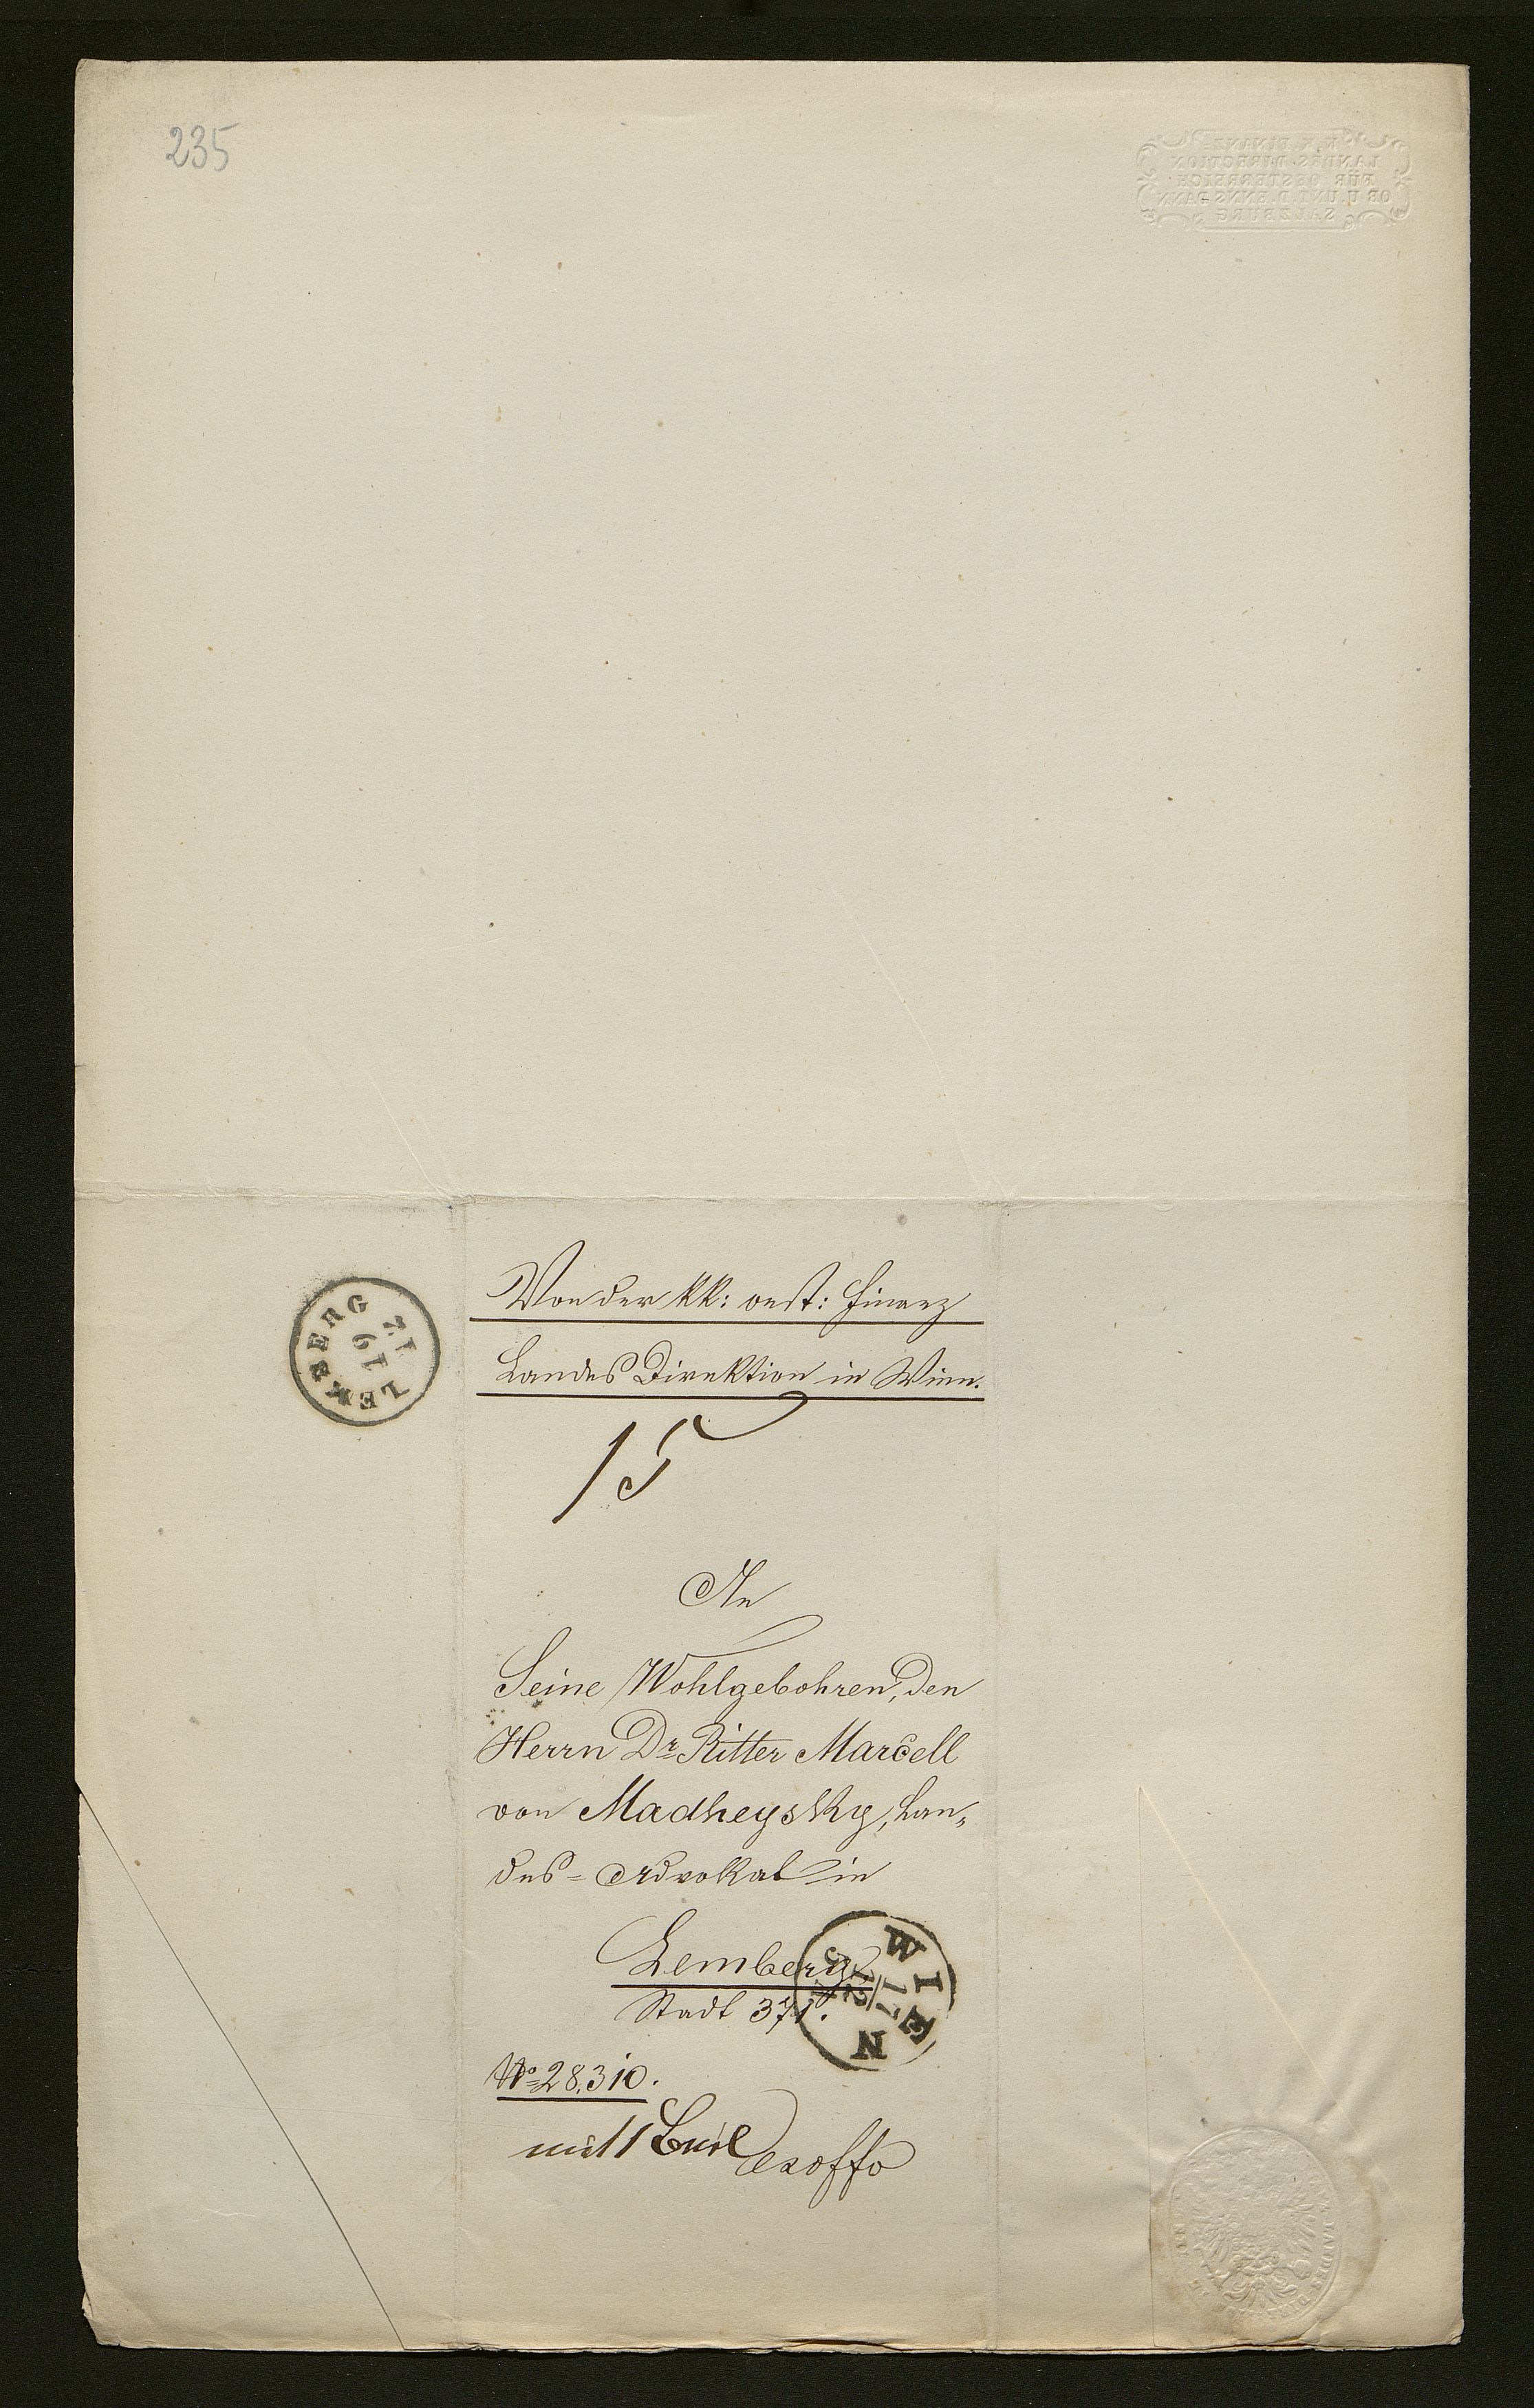 235
K. K. FINANZ-
LANDES-DIRECTION
FÜR OESTERREICH
OB U. UNT. D. ENNS DANN
SALZBURG
Von der kk: oest: Finanz
Landes Direktion in Wien.
LEMBERG
19
12
15
An
Seine Wohlgebohren, den
Herrn Dr Ritter Marcell
von Madheysky, Lan„
des = Advokat in
Lemberg
Stadt 371.
WIEN
17
12
No 28,310.
mit 1 Beil
exoffo